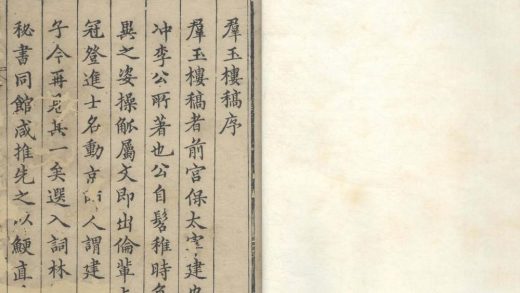 羣玉樓稿序
羣玉樓稿者前宮保太宰建
冲李公所著也公自髫稚時
異之姿操觚屬文即出倫輩
冠登進士名動京人謂建
于今再見其一矣選入詞林
秘書同館咸推先之以鯁直